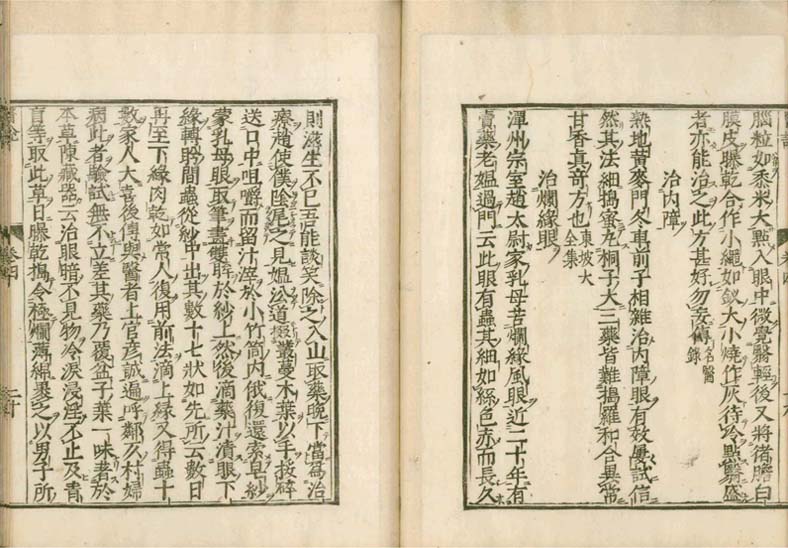 腦粒如黍米大點入眼中微覺翳輕後又將猪膽白
膜皮曝乾合作小繩如釵大小燒作灰待冷點翳盛
者亦能治之此方甚好勿妄傳名醫錄
治內障
熟地黄麥門冬車前子相雜治內障眼有效屢試信
然其法細搗蜜丸桐子大三藥皆難搗羅和合異常
甘香真奇方也東坡大全集
治爛緣眼
潭州宗室趙太尉家乳母苦爛緣風眼近二十年有
賣藥老媼過門云此眼有蟲其細如絲色赤而長久
則滋生不已吾能談笑除之入山取藥晚下當爲治
療趙使僕陰尾之見媼㳂道掇叢蔓木葉以手挼碎
送口中咀嚼而留汁滓於小竹筒內俄復還索皁紗
蒙乳母眼取筆畫雙眸於紗上然後滴藥汁漬眼下
緣轉眄間蟲從紗中出其數十七狀如先所云數日
再至下緣肉乾如常人復用前法滴上緣又得蟲十
數家人大喜後傳與醫者上官彦誠遍呼鄰久村婦
病此者驗試無不立差其藥乃覆盆子葉一味者於
本草陳藏器云治眼暗不見物冷淚浸淫不止及青
盲等取此草日曝乾搗令極爛薄綿裹之以男子所
卷四